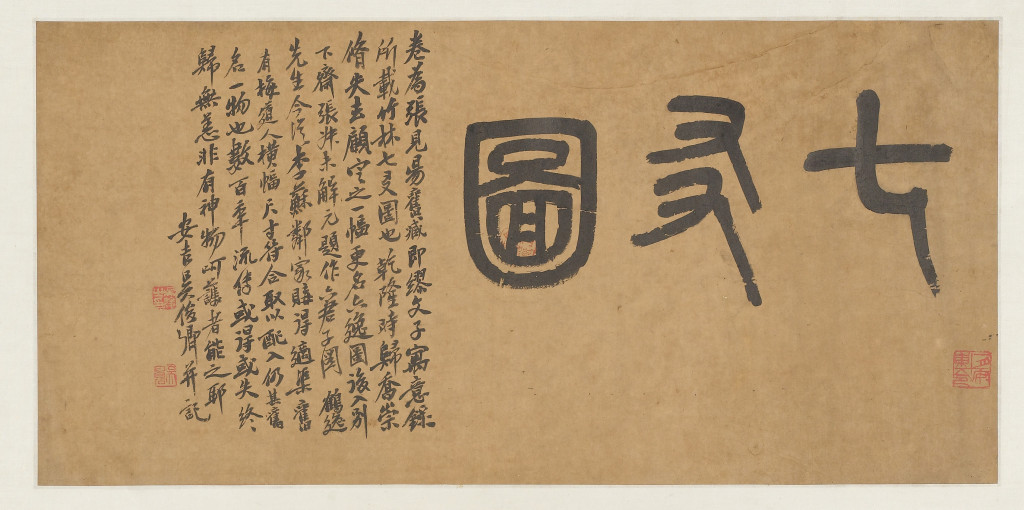 七友圖
卷為張見昜舊藏即繆文子寓意錄
所載竹林七友圖也乾隆時歸奮崇
脩失去顧定之一幅更名六逸圖後入別
下齋張叔未解元題作六君子圖 鶴逸
先生今從李蘇鄰家購得適渠舊
有梅道人橫幅尺寸符合取以配入仍其舊
名一物也數百年流傳或得或失終
歸無恙非有神物呵護者能之耶
安吉吳俊卿并記